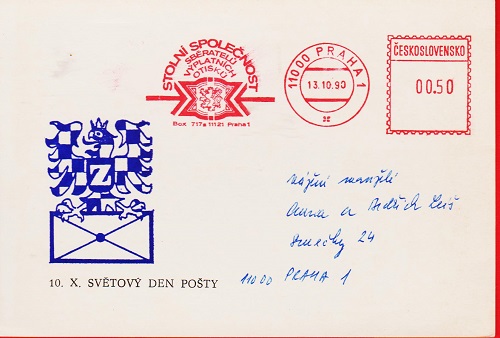 STOLNÍ SPOLEČNOST
SBĚRATELŮ
VÝPLATNÍCH
OTISKŮ
Box 717a 11121 Praha 1
11000 PRAHA 1
13.10.90
ČESKOSLOVENSKO
00.50
Z
Vážení manželé
Anna a Bedřich
Smečky 24
11000 PRAHA 1
10. X. SVĚTOVÝ DEN POŠTY